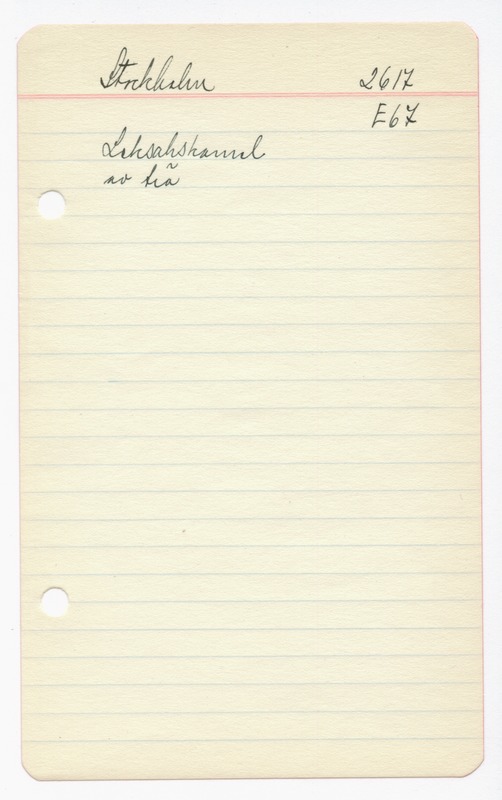 Stockholm 2617
E67
Leksakskamel
av trä